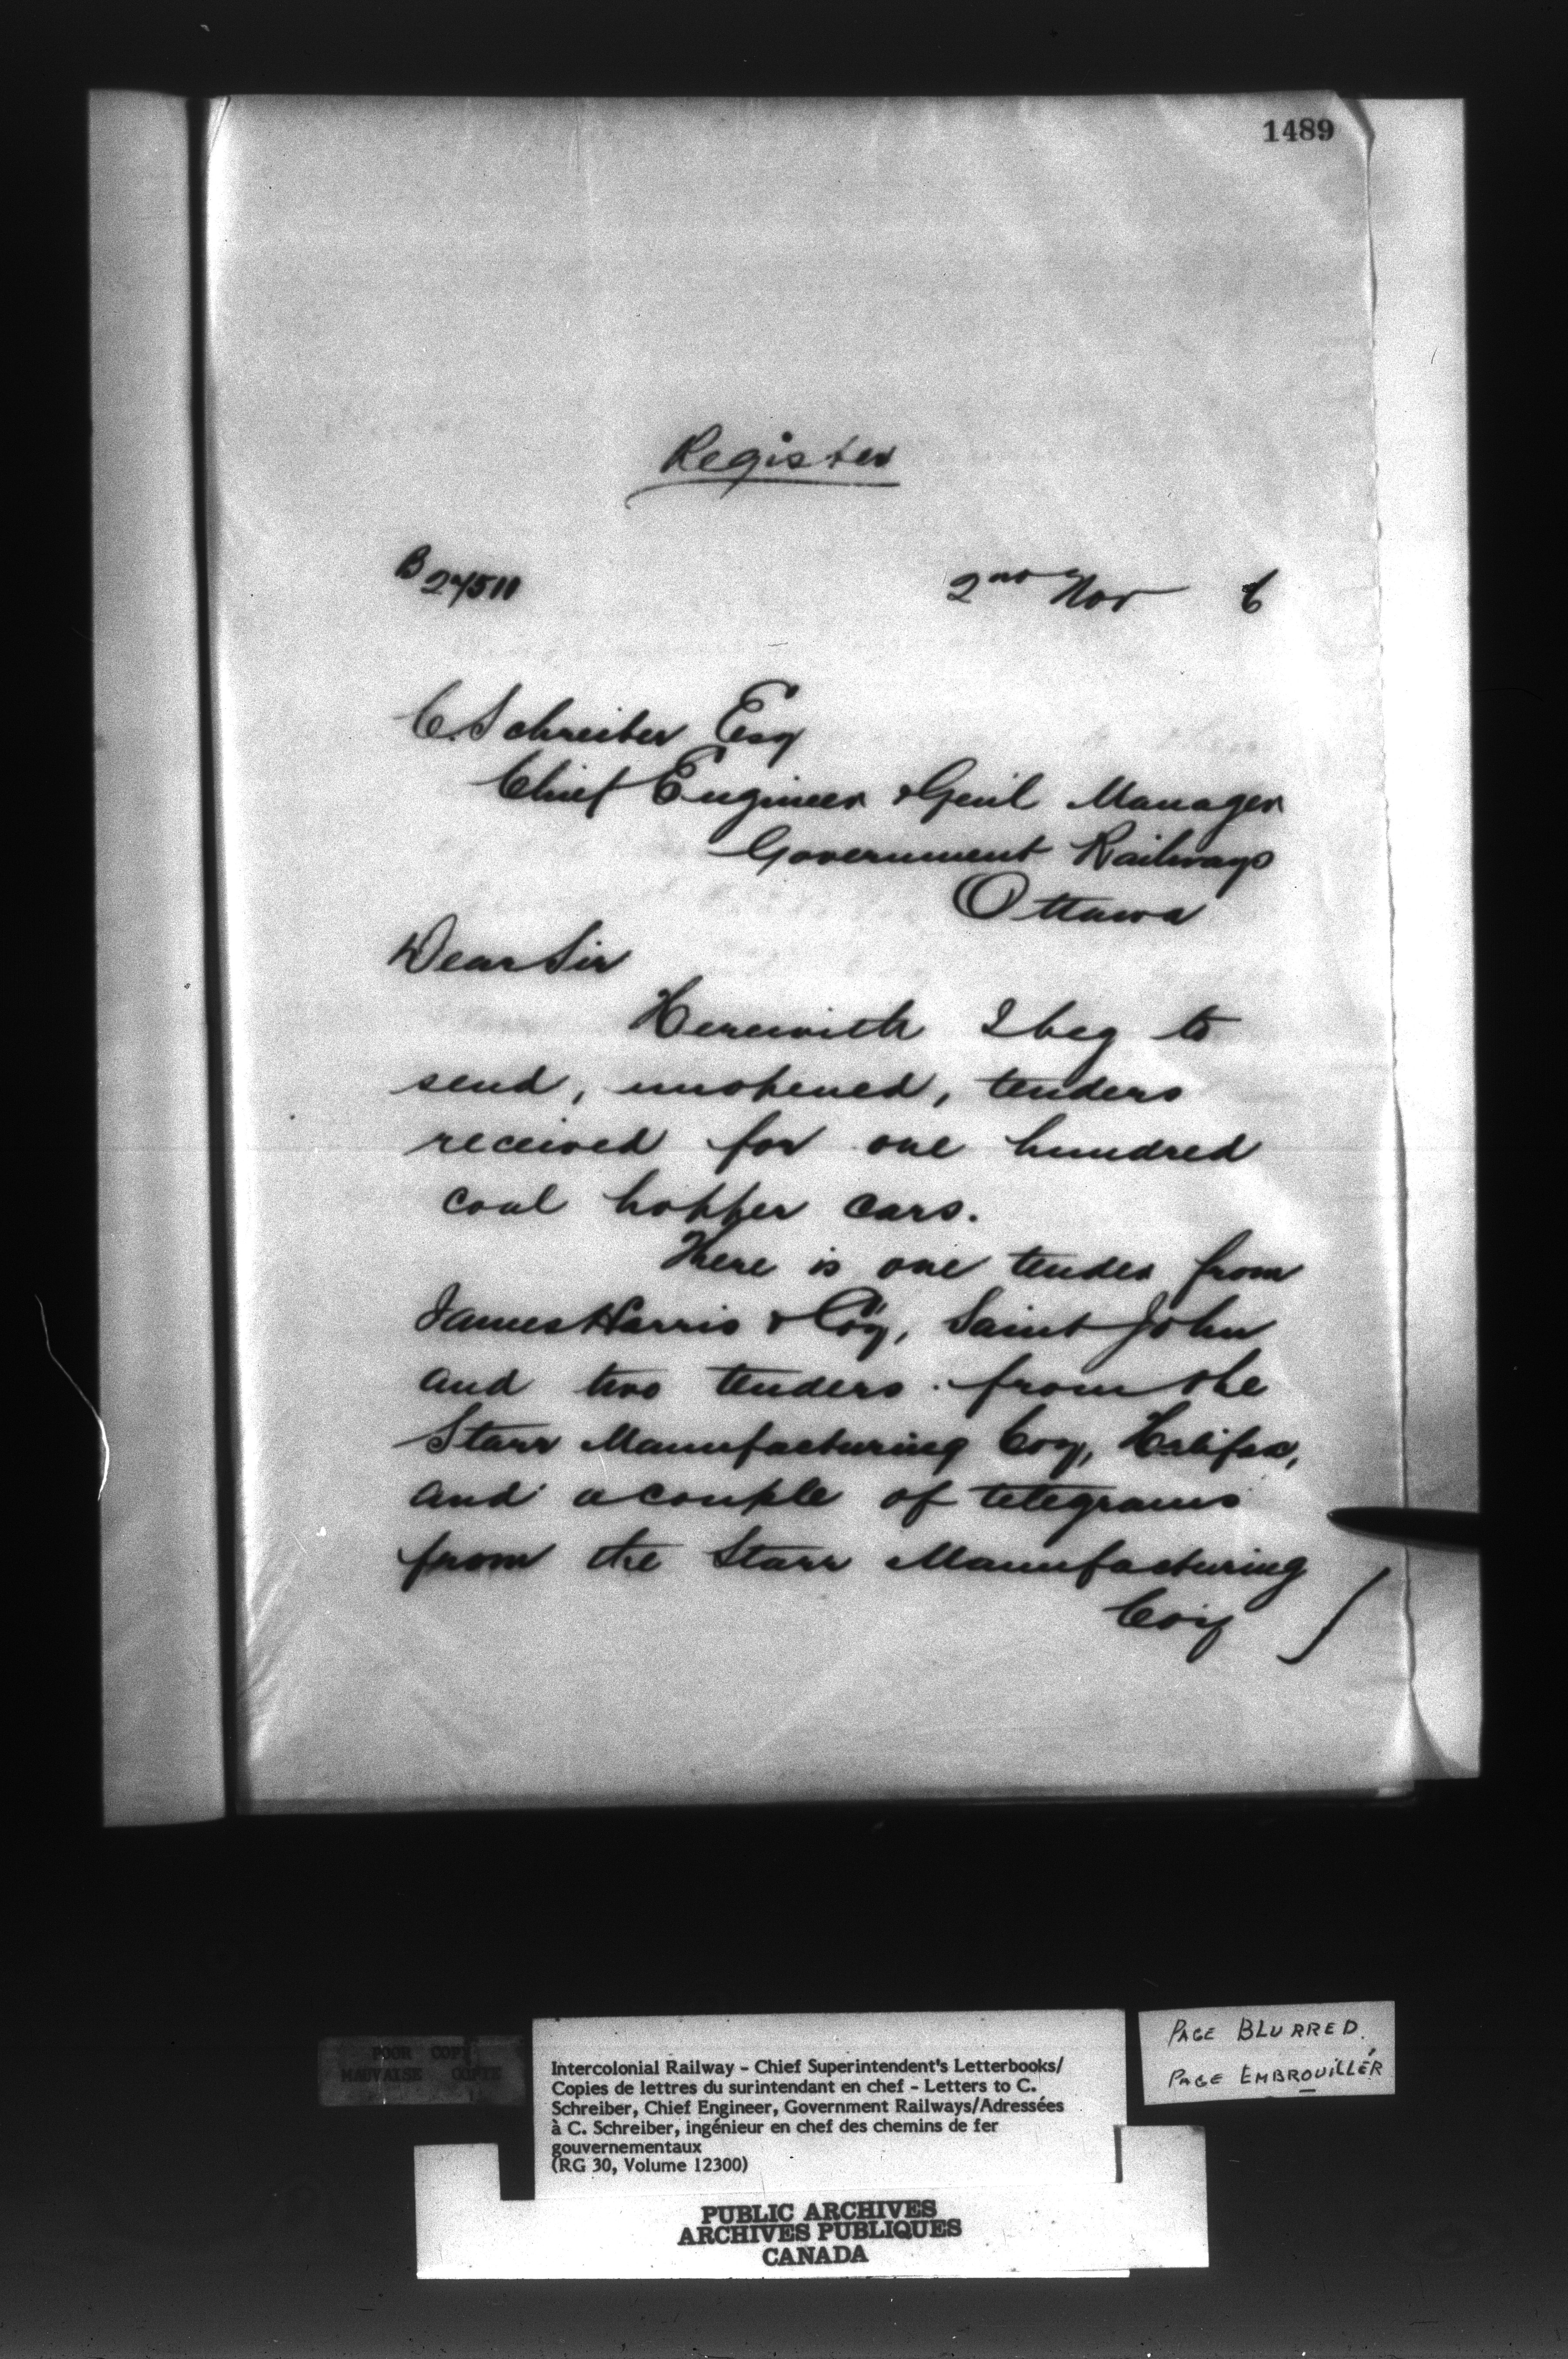 1489
Register
B 27511
2nd Nov 6
C. Schreiber Esq
Chief Engineer & Genl Manager
Government Railways
Ottawa
Dear Sir
Herewith I beg to
send, unopened, tenders
received for one hundred
coal hopper cars.
There is one tender from
James Harris & Coy, Saint John
and two tenders from the
Starr Manufacturing Coy, Halifax,
and a couple of telegrams
from the Starr Manufacturing
Coy
POOR COPY
MAUVAISE COPIE
Intercolonial Railway - Chief Superintendent's Letterbooks/
Copies de lettres du surintendant en chef - Letters to C.
Schreiber, Chief Engineer, Government Railways/Adressées
à C. Schreiber, ingénieur en chef des chemins de fer
gouvernementaux
(RG 30, Volume 12300)
PAGE BLURRED.
PAGE EMBROUILLÉR
PUBLIC ARCHIVES
ARCHIVES PUBLIQUES
CANADA